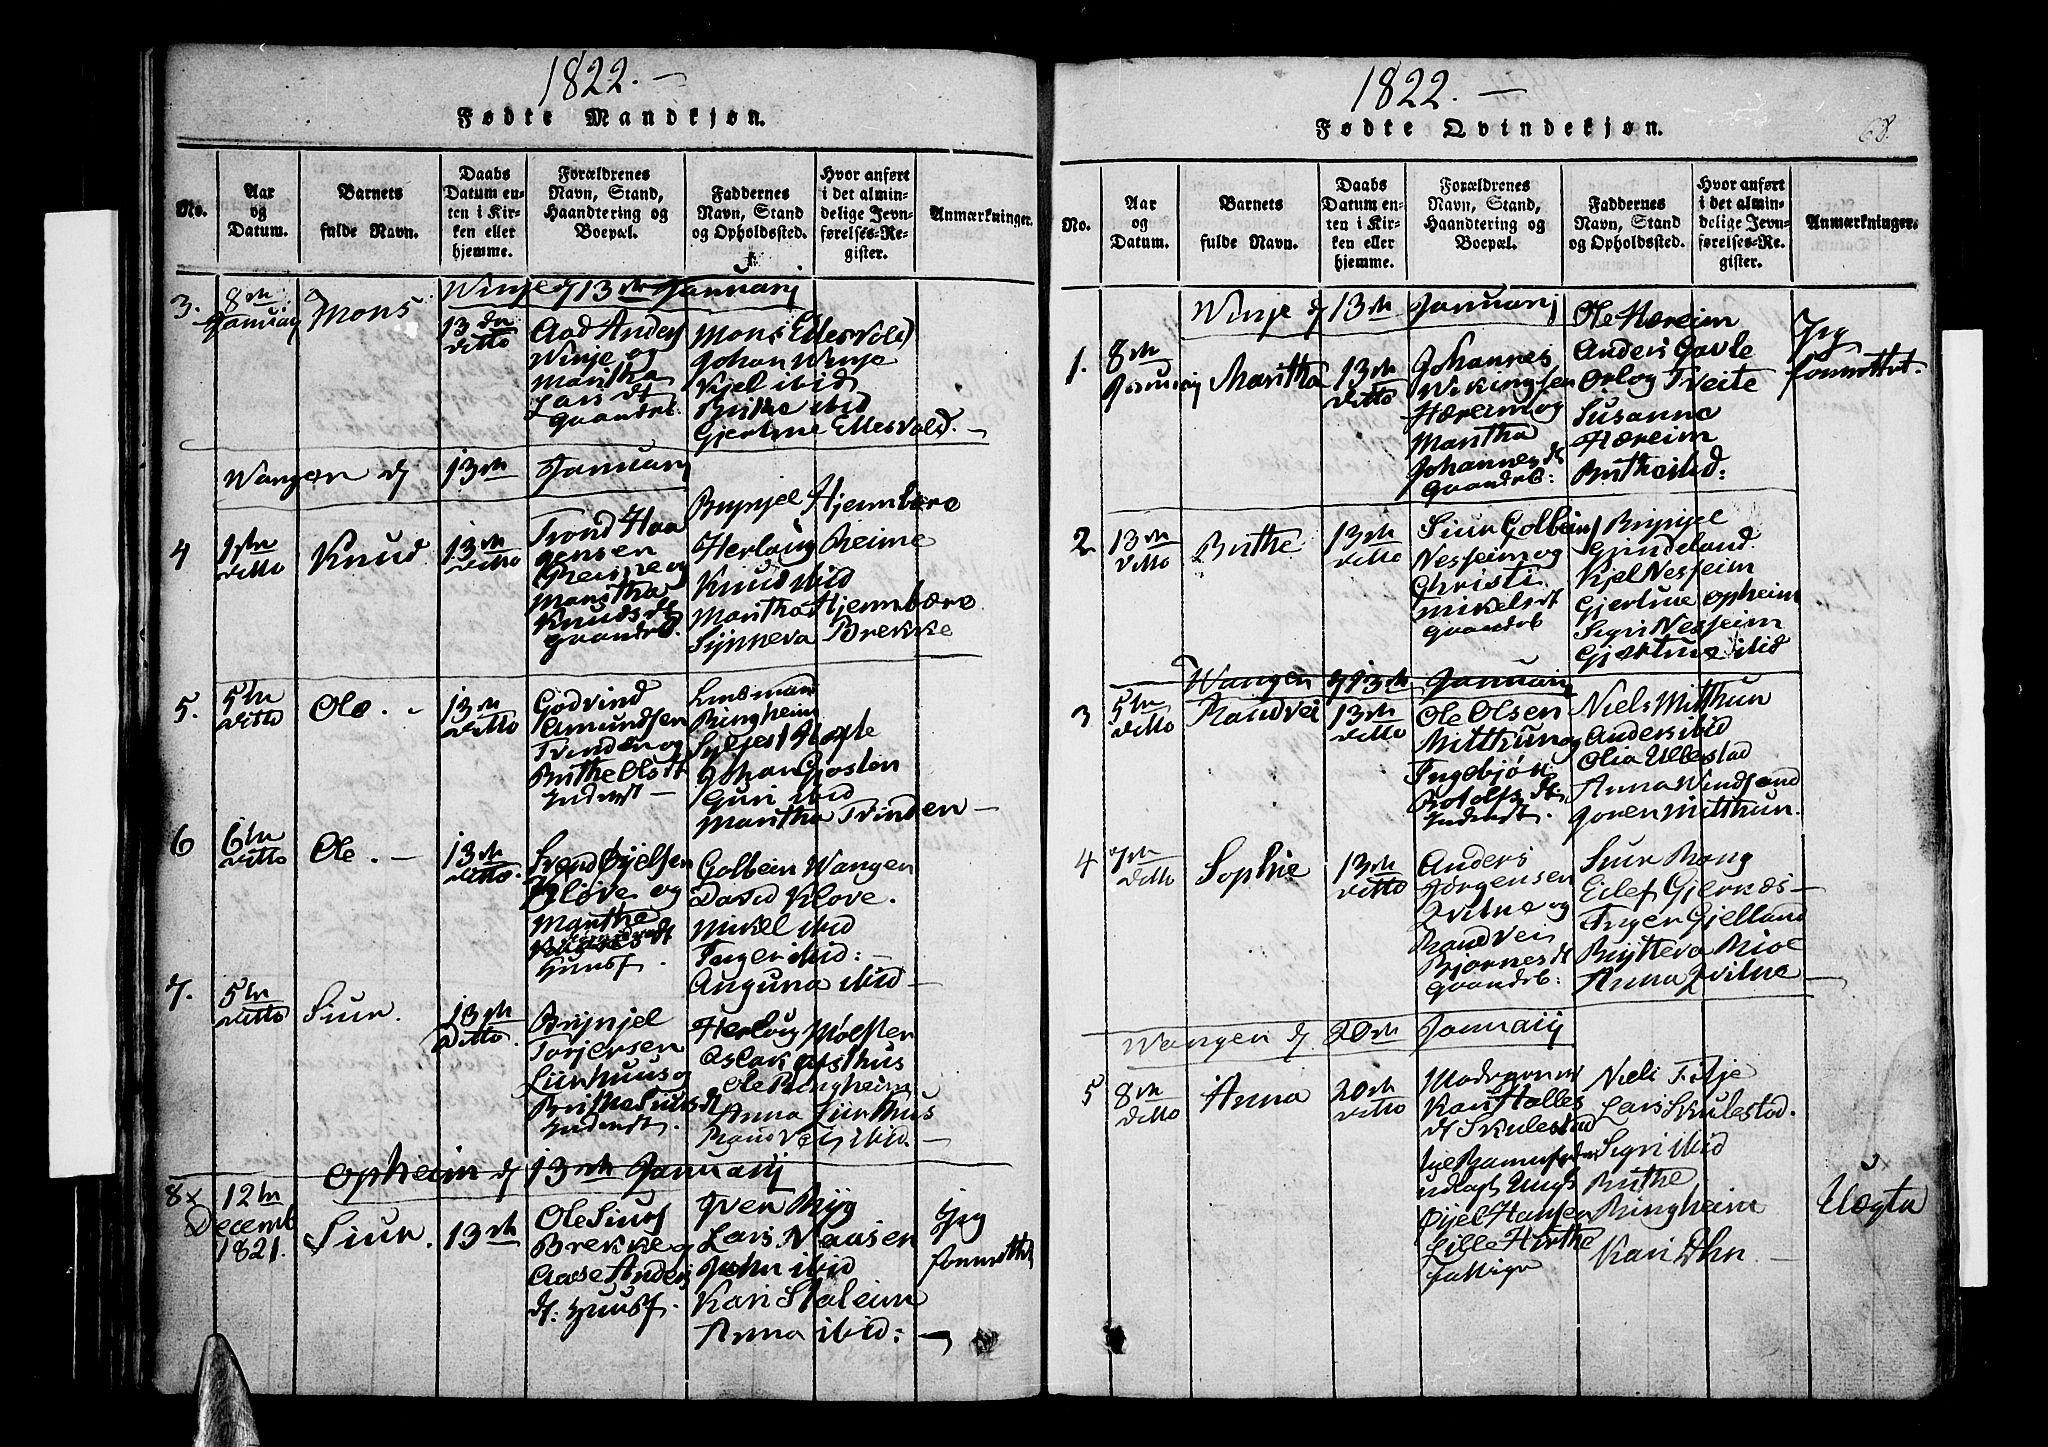 1822. —
Fødte Mandkjøn.
No.
Aar
og
Datum.
Barnets
fulde Navn.
Daabs
Datum en-
ten i Kir-
ken eller
hjemme.
Forældrenes
Navn, Stand,
Haandtering og
Boepæl.
Faddernes
Navn, Stand
og Opholdssted.
Hvor anført
i det almin-
delige Jevn-
førelses-Re-
gister.
Anmærkninger.
Winje d 13de Januarij
3.
8de
Januarij
Mons
13de
ditto
Aad Anders
Winje og
Maritha
Lars dt
Gaardb.
Mons Edesvold
Johan Winje
Kjel ibid
Brithe ibid
Gjertrue Edesvold. —
Wangen d 13de Januarij
4
1ste
ditto
Knud
13de
ditto
Trond Haa
gensen
Reime og
Maritha
Knuds dt
gaardb.
Brynjel Hjembære
Herlaug Reime
Knud ibid
Maritha Hjembære
Synneva Brekke
5.
5te
ditto
Ole. -
13de
ditto
Godvind
Amundsen
Tvinden og
Brithe Ols dt
Inderst —
Lensmand
Ringheim
Syljest
Johan Gjosten
Guri ibid
Maritha Tvinden —
6
6te
ditto
Ole. —
13de
ditto.
Svend Øjelsen
Kløve og
Martha
Huusf.
Golbein Wangen
David Kløve.
Mikel ibid
Inger ibid: —
Anguna ibid —
7.
5te
ditto
Siur.
13de
Ditto.
Brynjel
Torjersen
Liirhuus og
Brithe Siurs dt
Inderst.
Herloug Mølster
Aslak Asthus
Ole Ringheim
Anna Liirhus
Randvei ibid. —
Opheim d 13de Januarij
8 x
12te
Decemb
1821.
Siur.
13de
Ole Siurs
Brekke og
Aase Anders
dt. Huusf.
Iver Ryg
Lars Naasen
John ibid
Kari Staleim
Anna ibid: —
Jeg
forrettet
1822. —
Fødte Qvindekjøn.
68.
No.
Aar
og
Datum.
Barnets
fulde Navn.
Daabs
Datum en-
ten i Kir-
ken eller
hjemme.
Forældrenes
Navn, Stand,
Haandtering og
Boepæl.
Faddernes
Navn, Stand
og Opholdssted.
Hvor anført
i det almin-
delige Jevn-
førelses-Re-
gister.
Anmærkninger.
Winje d 13de Januarij
1.
8de
Januarij
Maritha
13de
ditto
Johannes
Wikingsen
Hæreim og
Martha
Johannes dt
Gaardb:
Ole Hæreim
Anders Gavle
Orlog Tveite
Susanna
Hæreim
Brithe ibid:
Jeg
forrettet.
2
13de
ditto
Brithe
13de
ditto
Siur Golbein
Nesheim og
Christi
Mikels dt
Gaardb
Brynjel
Gjindeland.
Kjel Nesheim
Gjertrue Opheim
Sigri Nesheim
Gjertrue ibid
Wangen d 13de Januarij
3
5te
ditto
Randvei
13de
ditto
Ole Olsen
Mitthun og
Ingebjør
Rolofs dt
Inderst.
Niels Mitthun
Anders ibid
Olia Ullestad
Anna
Joren Mitthun.
4
7de
ditto
Sophie
13de
ditto
Anders
Jørgensen
Qvitne og
Randvei
Bjørnes dt
Gaardb:
Siur Rong
Edef Gjernes —
Inger Gjelland
Brytteva Rioe
Anna Qvitne —
Wangen d. 20de Januarij
5
8de
ditto
Anna
20de
ditto
Kari Halles
dt Skulestad
udlagt Ungk
Øjel Hansen
Lille Hirthe
fattige
Niels Tilje
Lars Skulestad.
Sigri ibid
Brithe
Ringheim
Kari Dhn —
Uægte